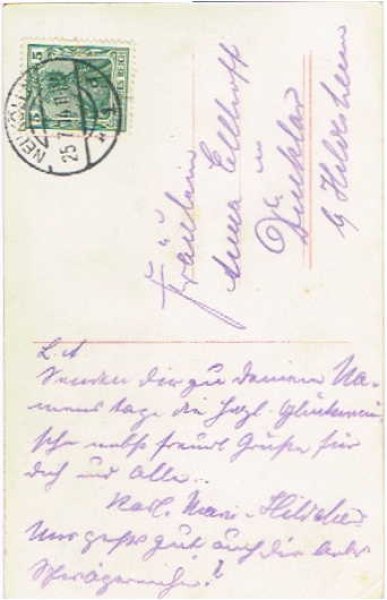 5 5
NEUKÖLLN
25.7.14
Fräulein
Anna Ellhoff
in
Dinklar
b/ Hildesheim
L. A
Senden dir zu deinem Na-
menstage die herzl. Glückwün-
sche nebst freundl. Grüße für
dich und Alle.
Karl. Marie. Hilscher
Uns gehts gut, auch die